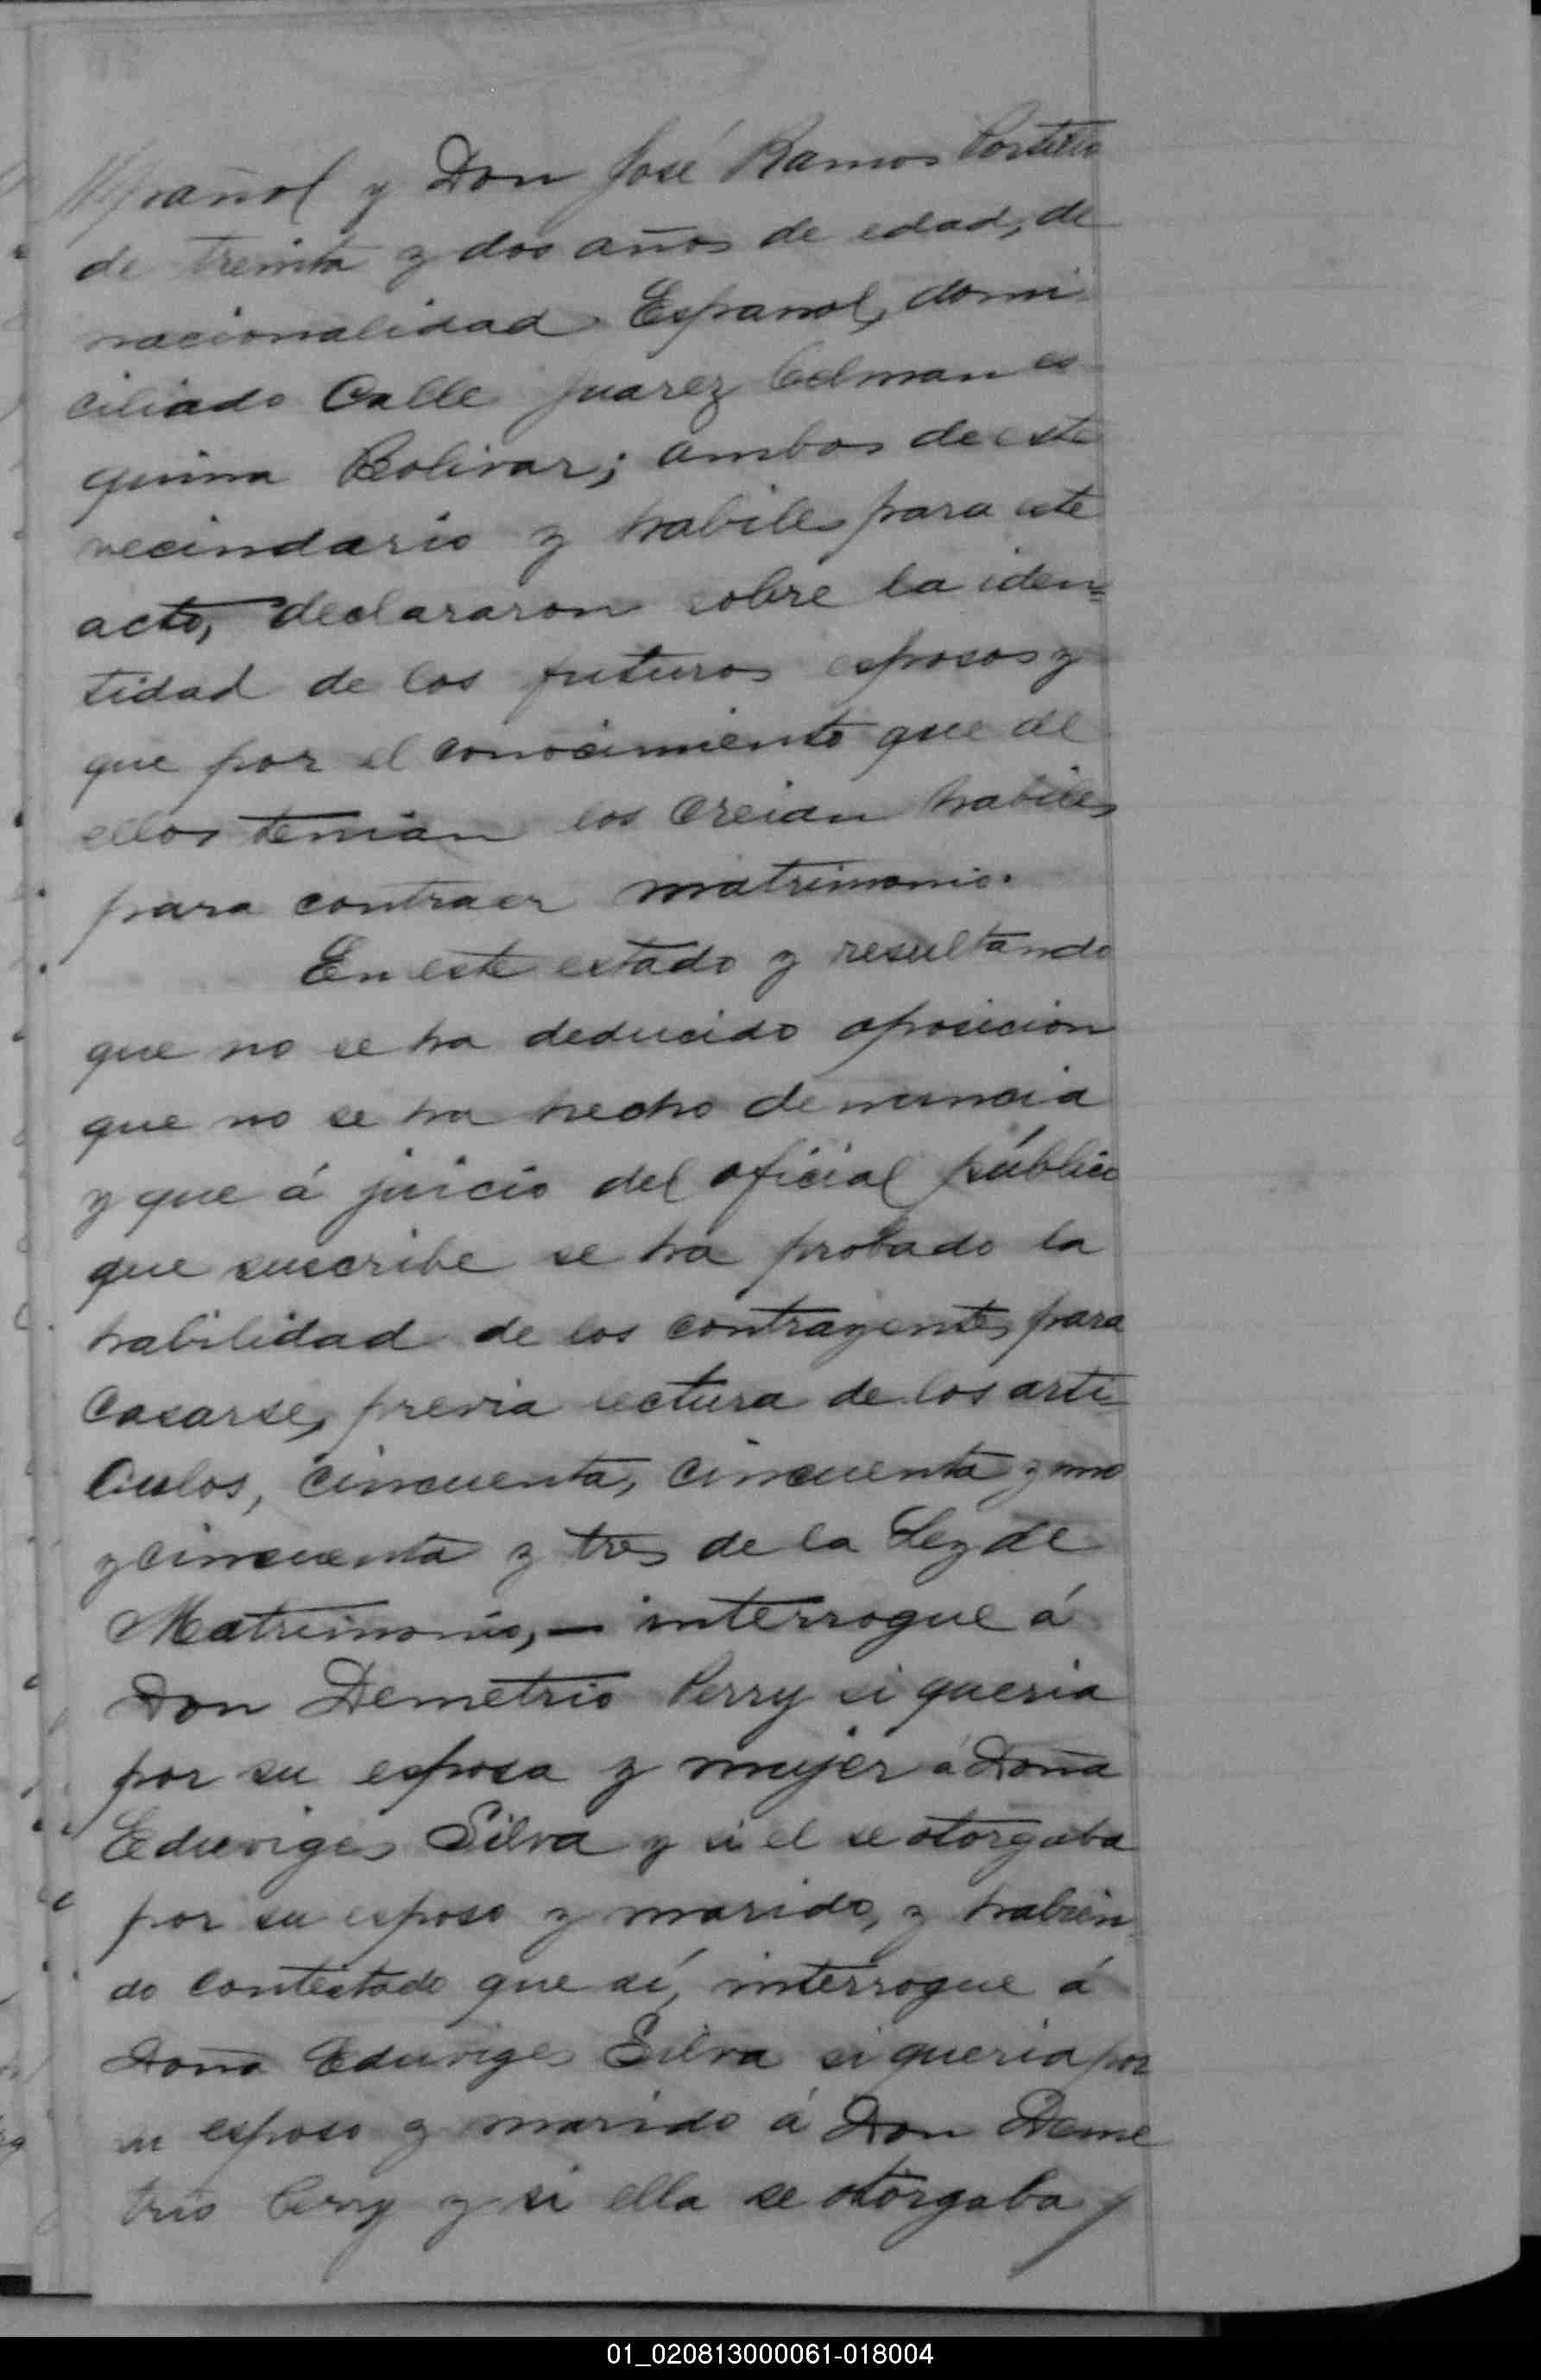 Español y Don José Ramos Portillo
de treinta y dos años de edad, de
nacionalidad Español, domi-
ciliado Calle Juarez Celman es-
quina Bolivar; ambos de este
vecindario y habiles para este
acto, declararon sobre la iden=
tidad de los futuros esposos y
que por el conocimiento que de
ellos tenian los creian habiles
para contraer matrimonio.
En este estado y resultando
que no se ha deducido oposicion
que no se ha hecho denuncia
y que á juicio del oficial público
que suscribe se ha probado la
habilidad de los contrayentes para
casarse, previa lectura de los arti-
culos, cincuenta, cincuenta y uno
y cincuenta y tres de la Ley de
Matrimonio, — interrogue á
Don Demetrio Perry si queria
por su esposa y mujer á Doña
Eduviges Silva y si el se otorgaba
por su esposo y marido, y habien-
do contestado que sí, interrogue á
Doña Eduviges Silva si queria por
su esposo y marido á Don Deme
trio Perry y si ella se otorgaba /
01_020813000061-018004